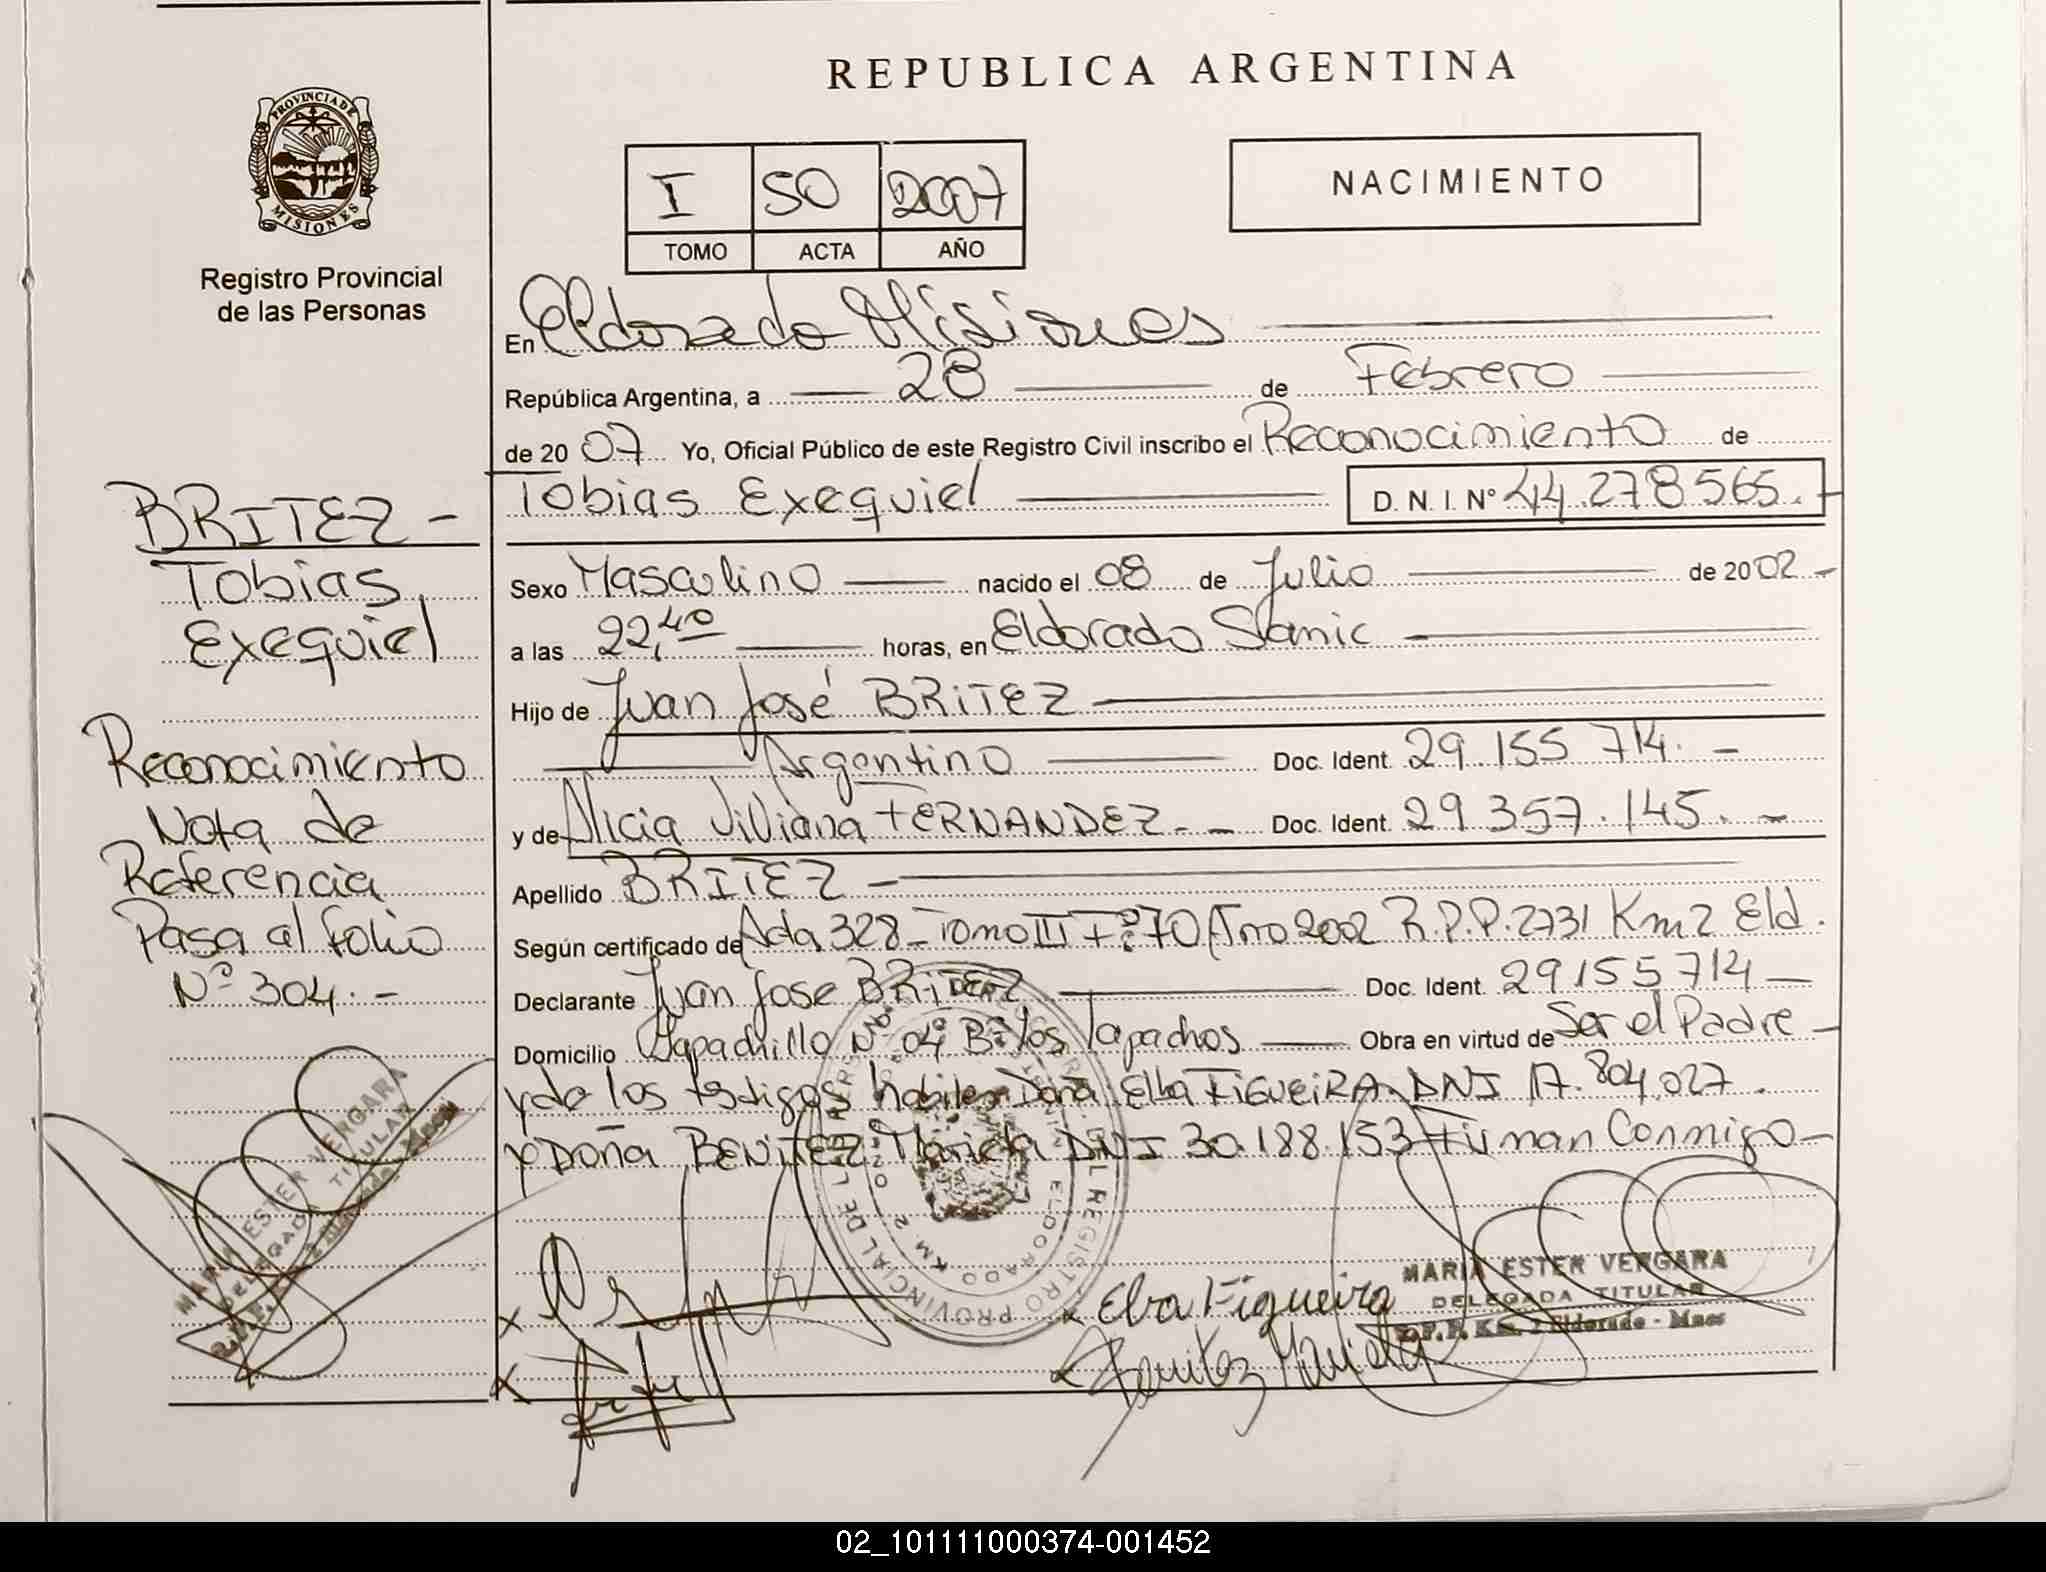 REPUBLICA ARGENTINA
PROVINCIA DE
MISIONES
Registro Provincial
de las Personas
I 50 2007
TOMO ACTA AÑO
NACIMIENTO
En Eldorado Misiones
República Argentina, a 28 de Febrero
de 2007 Yo, Oficial Público de este Registro Civil inscribo el Reconocimiento de
Tobias Exequiel D.N.I. N° 44.278565.-
Sexo Masculino nacido el 08 de Julio de 2002-
a las 22,40 horas, en Eldorado Samic
Hijo de Juan José BRITEZ
Argentino Doc. Ident. 29.155 714.-
y de Alicia Viviana FERNANDEZ.- Doc. Ident. 29357.145.-
Apellido BRITEZ-
Según certificado de Acta 328-Tomo III Fº 70 Año 2002 R.P.P. 2731 Km2 Eld.
Declarante Juan Jose BRITEZ Doc. Ident. 29155714-
Domicilio Nº 04 Bº los Tapachos Obra en virtud de Ser el Padre-
y de los testigos habiles Doña Elba FIGUEIRA DNI 17.804.027
y Doña BENITEZ Mariela DNI 30.188.153 Firman Conmigo-
BRITEZ-
Tobias
Exequiel
Reconocimiento
Nota de
Referencia
Pasa al folio
Nº 304.-
MARIA ESTER VERGARA
DELEGADA TITULAR
x
x
x Elva Figueira
x Benitez Mariela
MARIA ESTER VERGARA
DELEGADA TITULAR
R.P.P. Km. 2 Eldorado - Mnes
REGISTRO PROVINCIAL DE LAS PERSONAS
ELDORADO KM 2
02_101111000374-001452